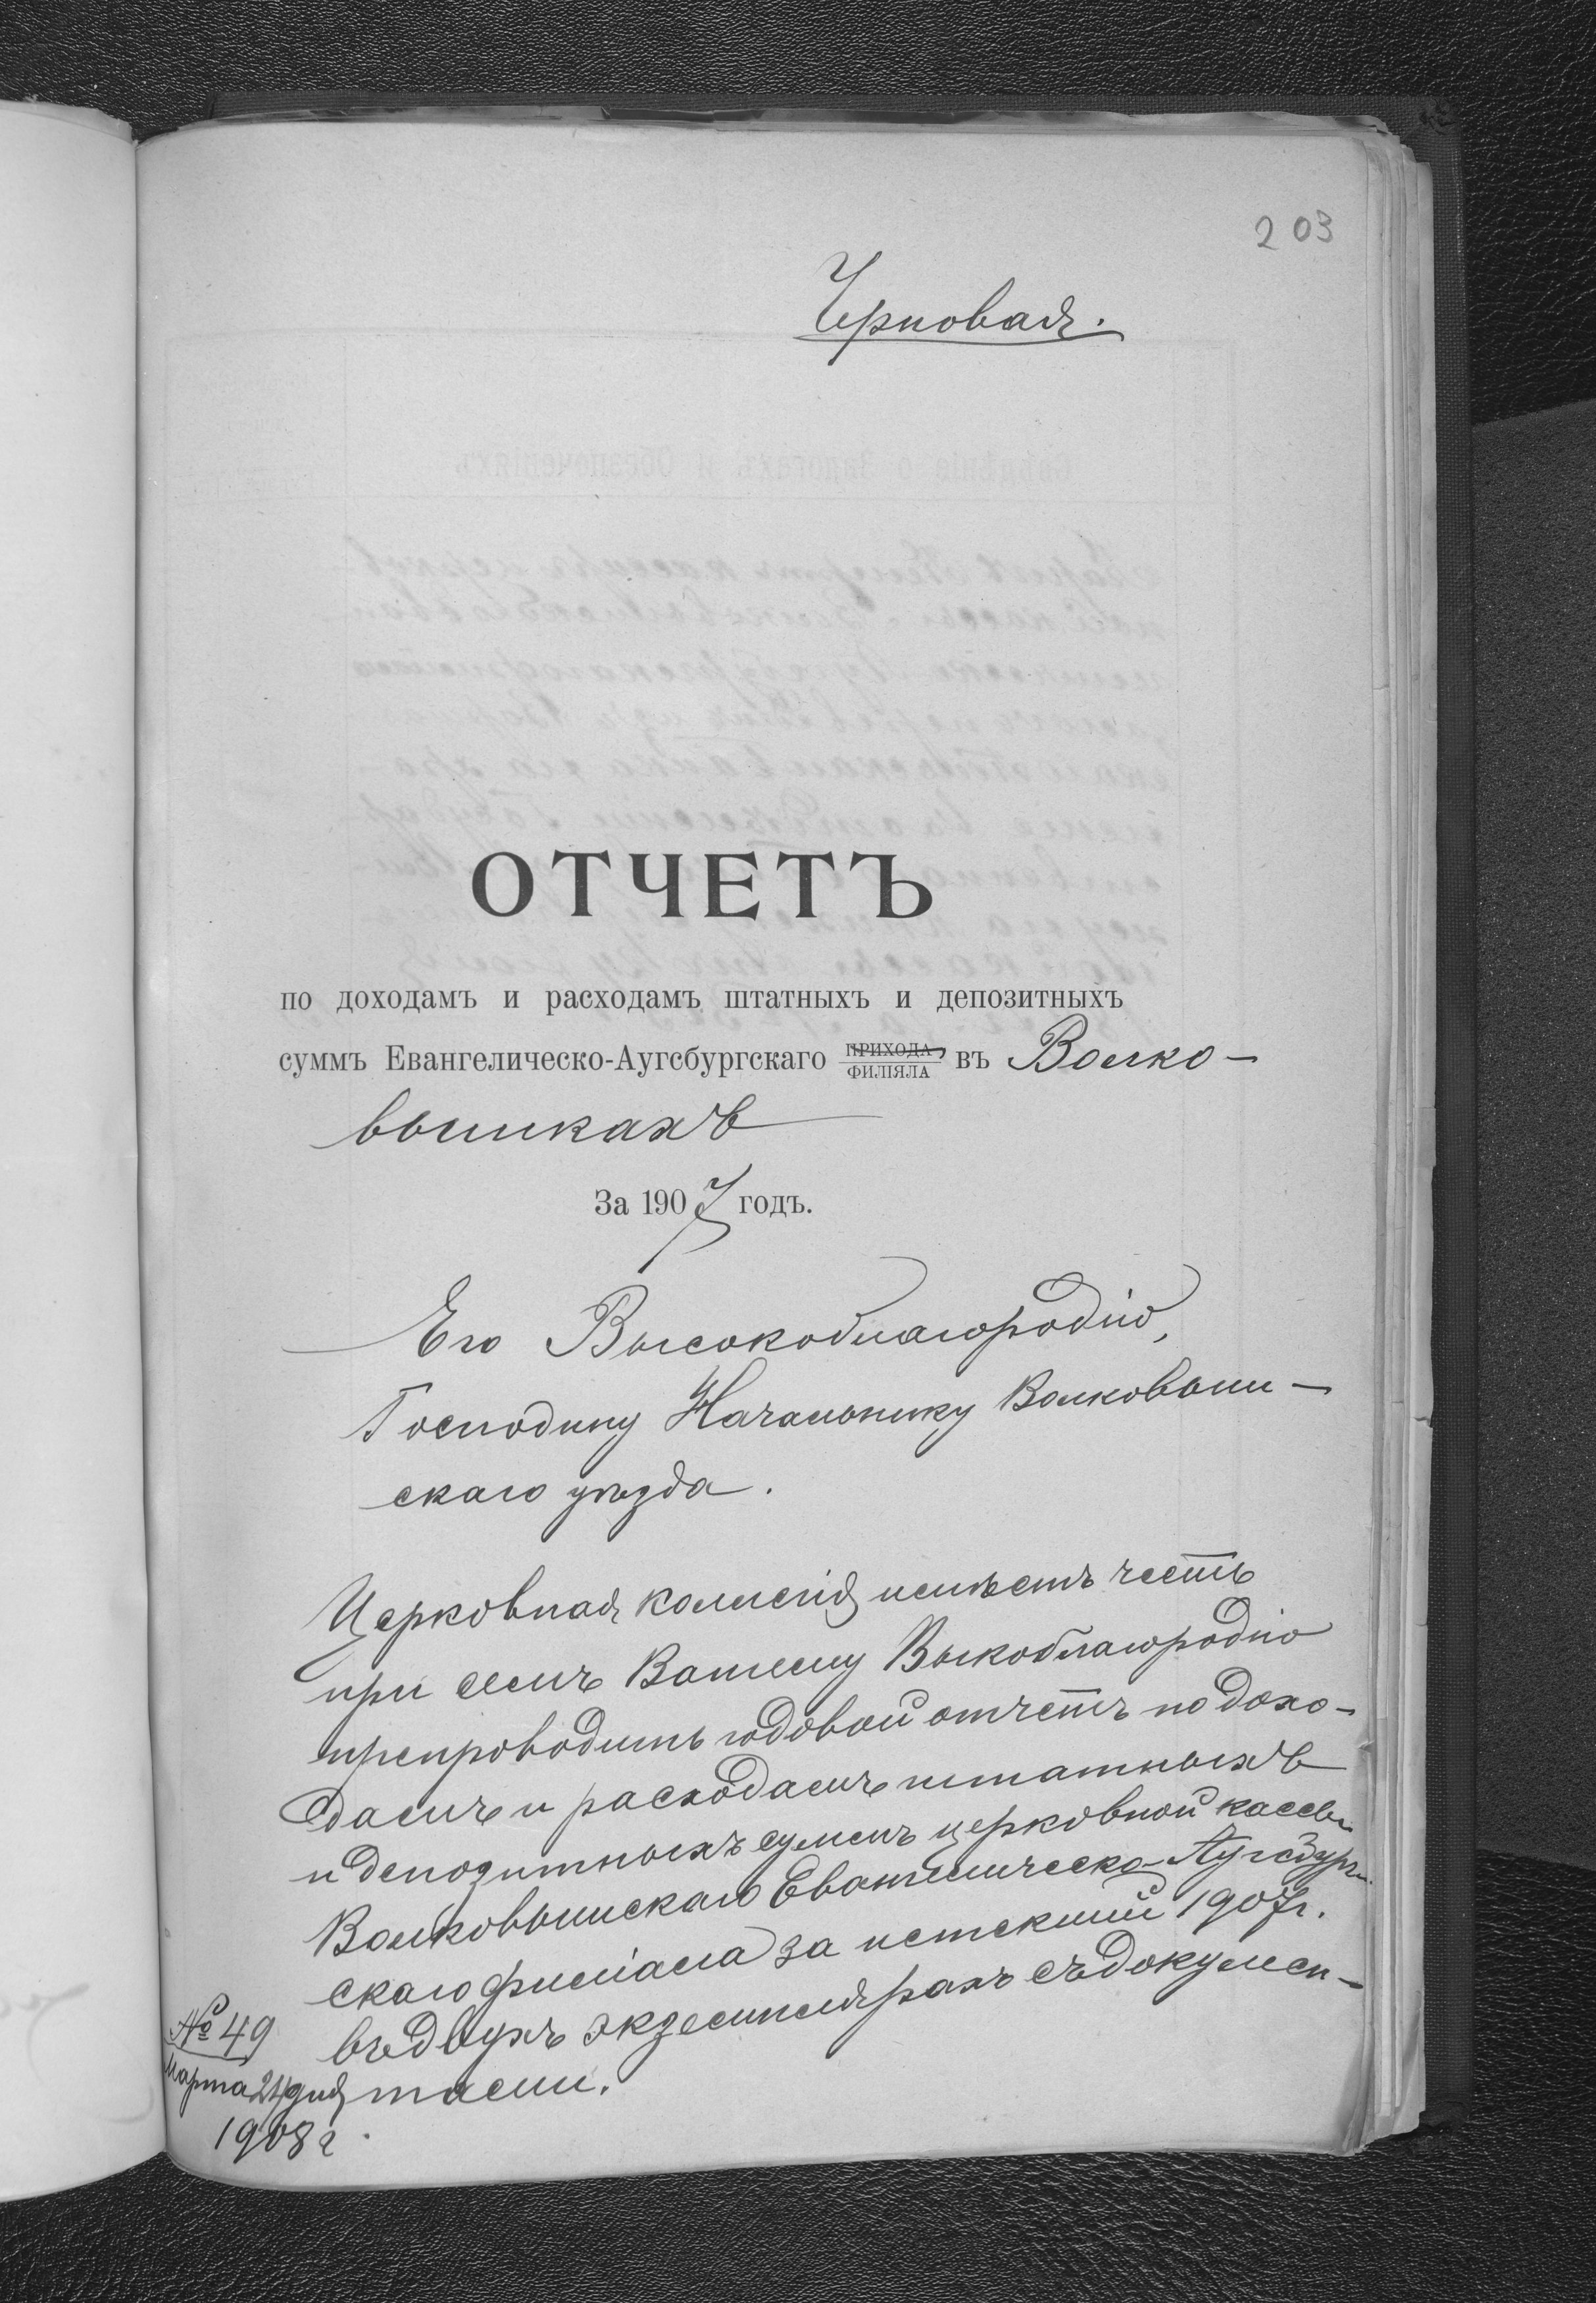 203
Черновая.
ОТЧЕТЪ
по доходамъ и расходамъ штатныхъ и депозитныхъ
суммъ Евангелическо-Аугсбургскаго ПРИХОДА ФИЛІЯЛА въ Волко-
вышкахъ
За 1907 годъ.
Его Высокоблагородію,
Господину Начальнику Волковыш-
скаго уѣзда.
Церковная коллегія имѣетъ честь
при семъ Вашему Выкоблагородію
препроводить годовой отчетъ по дохо-
дамъ и расходамъ штатныхъ
и депозитныхъ суммъ церковной кассы
Волковышскаго Евангелическо-Аугсбург-
скаго филіала за истекшій 1907 г.
въ двухъ экземплярахъ съ докумен-
тами.
№ 49
Марта 24 дня
1908 г.